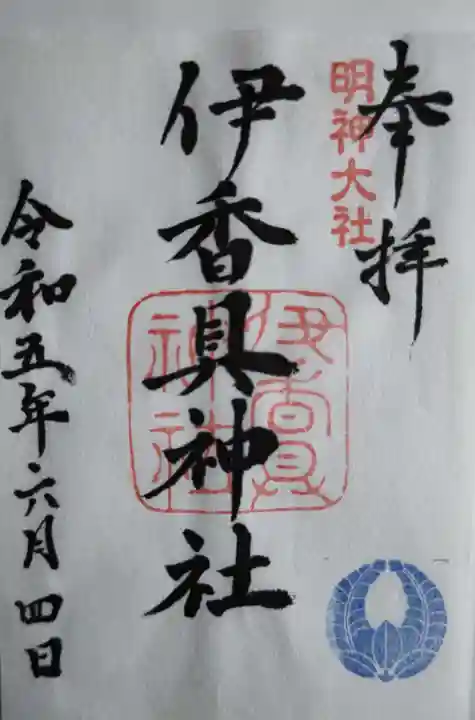 奉拝
明神大社
伊香具神社
伊香具
神社
令和五年六月四日